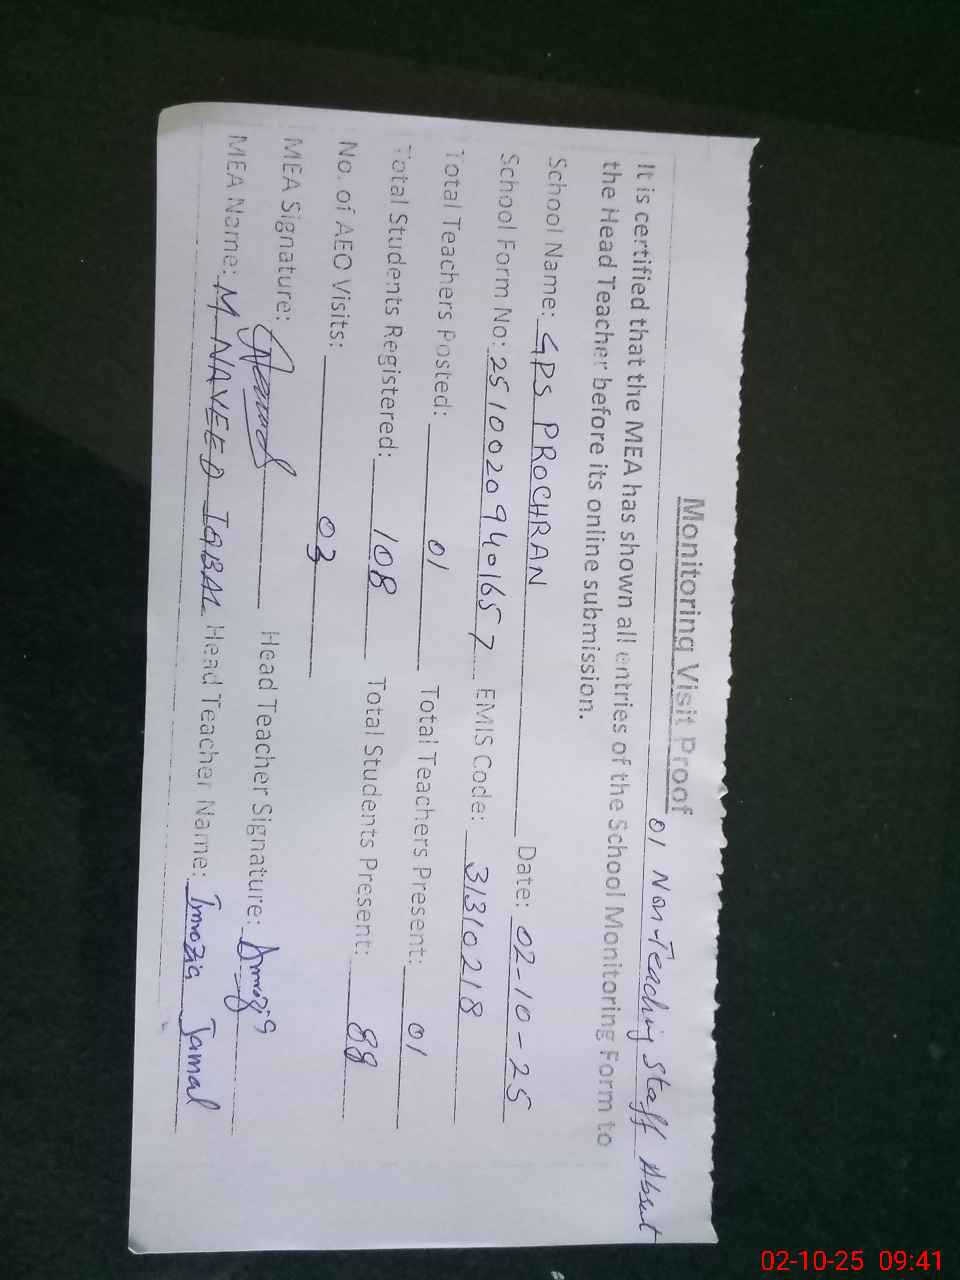 Monitoring Visit Proof
01 Non-Teaching Staff Absent
It is certified that the MEA has shown all entries of the School Monitoring Form to
the Head Teacher before its online submission.
School Name: GPS PROCHRAN Date: 02-10-25
School Form No: 25100209401657 EMIS Code: 31310218
Total Teachers Posted: 01 Total Teachers Present: 01
Total Students Registered: 108 Total Students Present: 88
No. of AEO Visits: 03
MEA Signature: Head Teacher Signature:
MEA Name: M NAVEED IQBAL Head Teacher Name: Imrozia Jamal
02-10-25 09:41